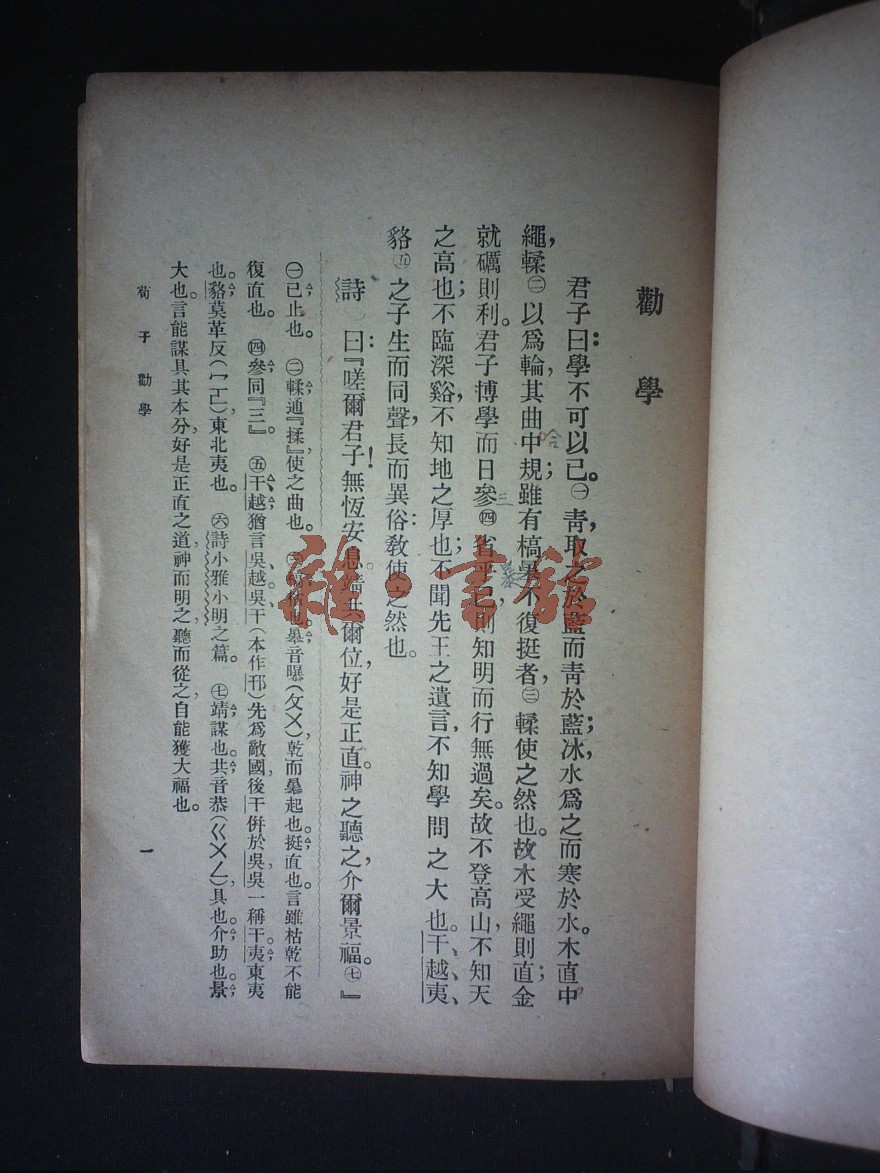 勸學
君子曰：學不可以已。㊀青，取之於藍而青於藍；冰，水爲之而寒於水。木直中
繩，輮㊁以爲輪，其曲中規；雖有槁暴不復挺者，㊂輮使之然也。故木受繩則直；金
就礪則利。君子博學而日參㊃省乎己，則知明而行無過矣。故不登高山，不知天
之高也；不臨深谿，不知地之厚也；不聞先王之遺言，不知學問之大也。干、越、夷、
貉㊄之子生而同聲，長而異俗：敎使之然也。
詩曰：『嗟爾君子！無恆安息。靖共爾位，好是正直。神之聽之，介爾景福。㊆』
㊀已，止也。㊁輮通『揉』，使之曲也。㊂也。暴音曝（ㄆㄨ），乾而暴起也。挺，直也。言雖枯乾不能
復直也。㊃參同『三』。㊄干越猶言吳越。吳干（本作邗）先爲敵國，後干併於吳，吳一稱干。夷，東夷
也。貉，莫革反（ㄇㄛ），東北夷也。㊅詩小雅小明之篇。㊆靖，謀也。共音恭（ㄍㄨㄥ），具也。介，助也。景，
大也。言能謀具其本分，好是正直之道，神而明之，聽而從之，自能獲大福也。
荀子勸學
一
哈
三
雜·書館